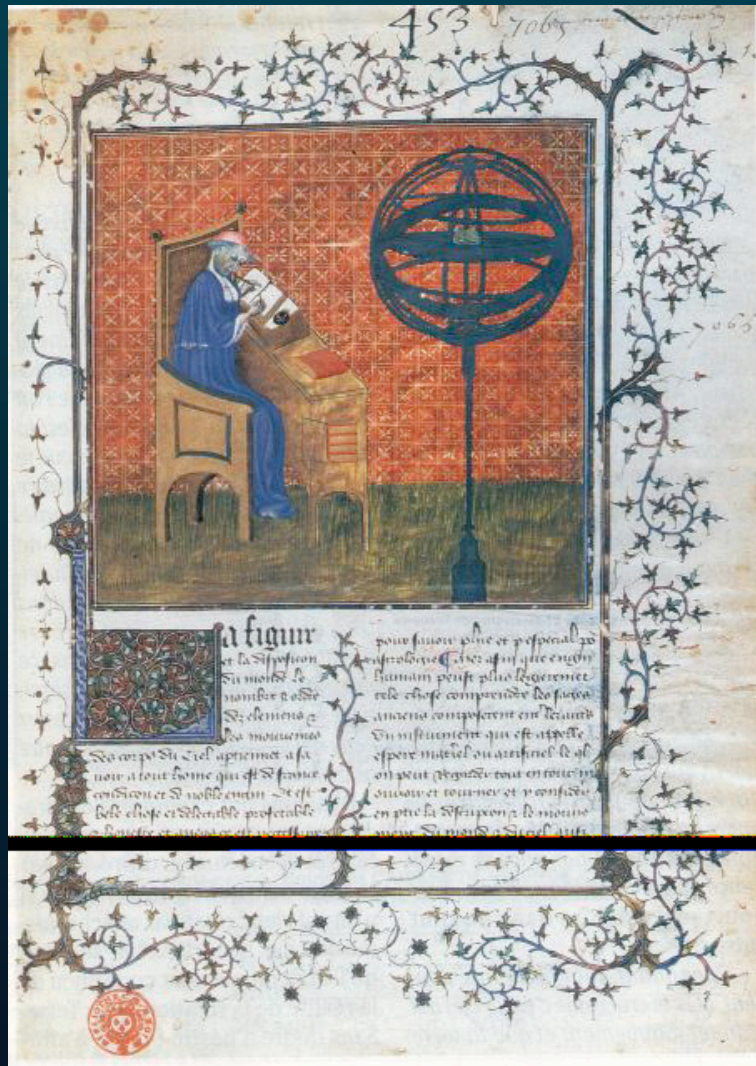 453
7065
7065
La figure
et la disposicion
du monde le
nombre & ordre
des elemens &
les mouvemens
des corps du ciel aptiennet a sa
voir a tout home qui est de franche
condicion et de noble engin Et est
bele chose et delectable profetable
& honeste et avecqs est necessaire
pour savoir phie et p especial po
astrologie Mez afin que engin
humain peust plus legierement
tele chose comprendre les sages
anciens composerent ent les autres
un instrument qui est appelle
espere materiel ou artificiel le ql
on peut regarder tout en tour
mouvoir et tourner et y considerer
en ptie la descripcion & le mouve
ment du monde & du ciel ausi